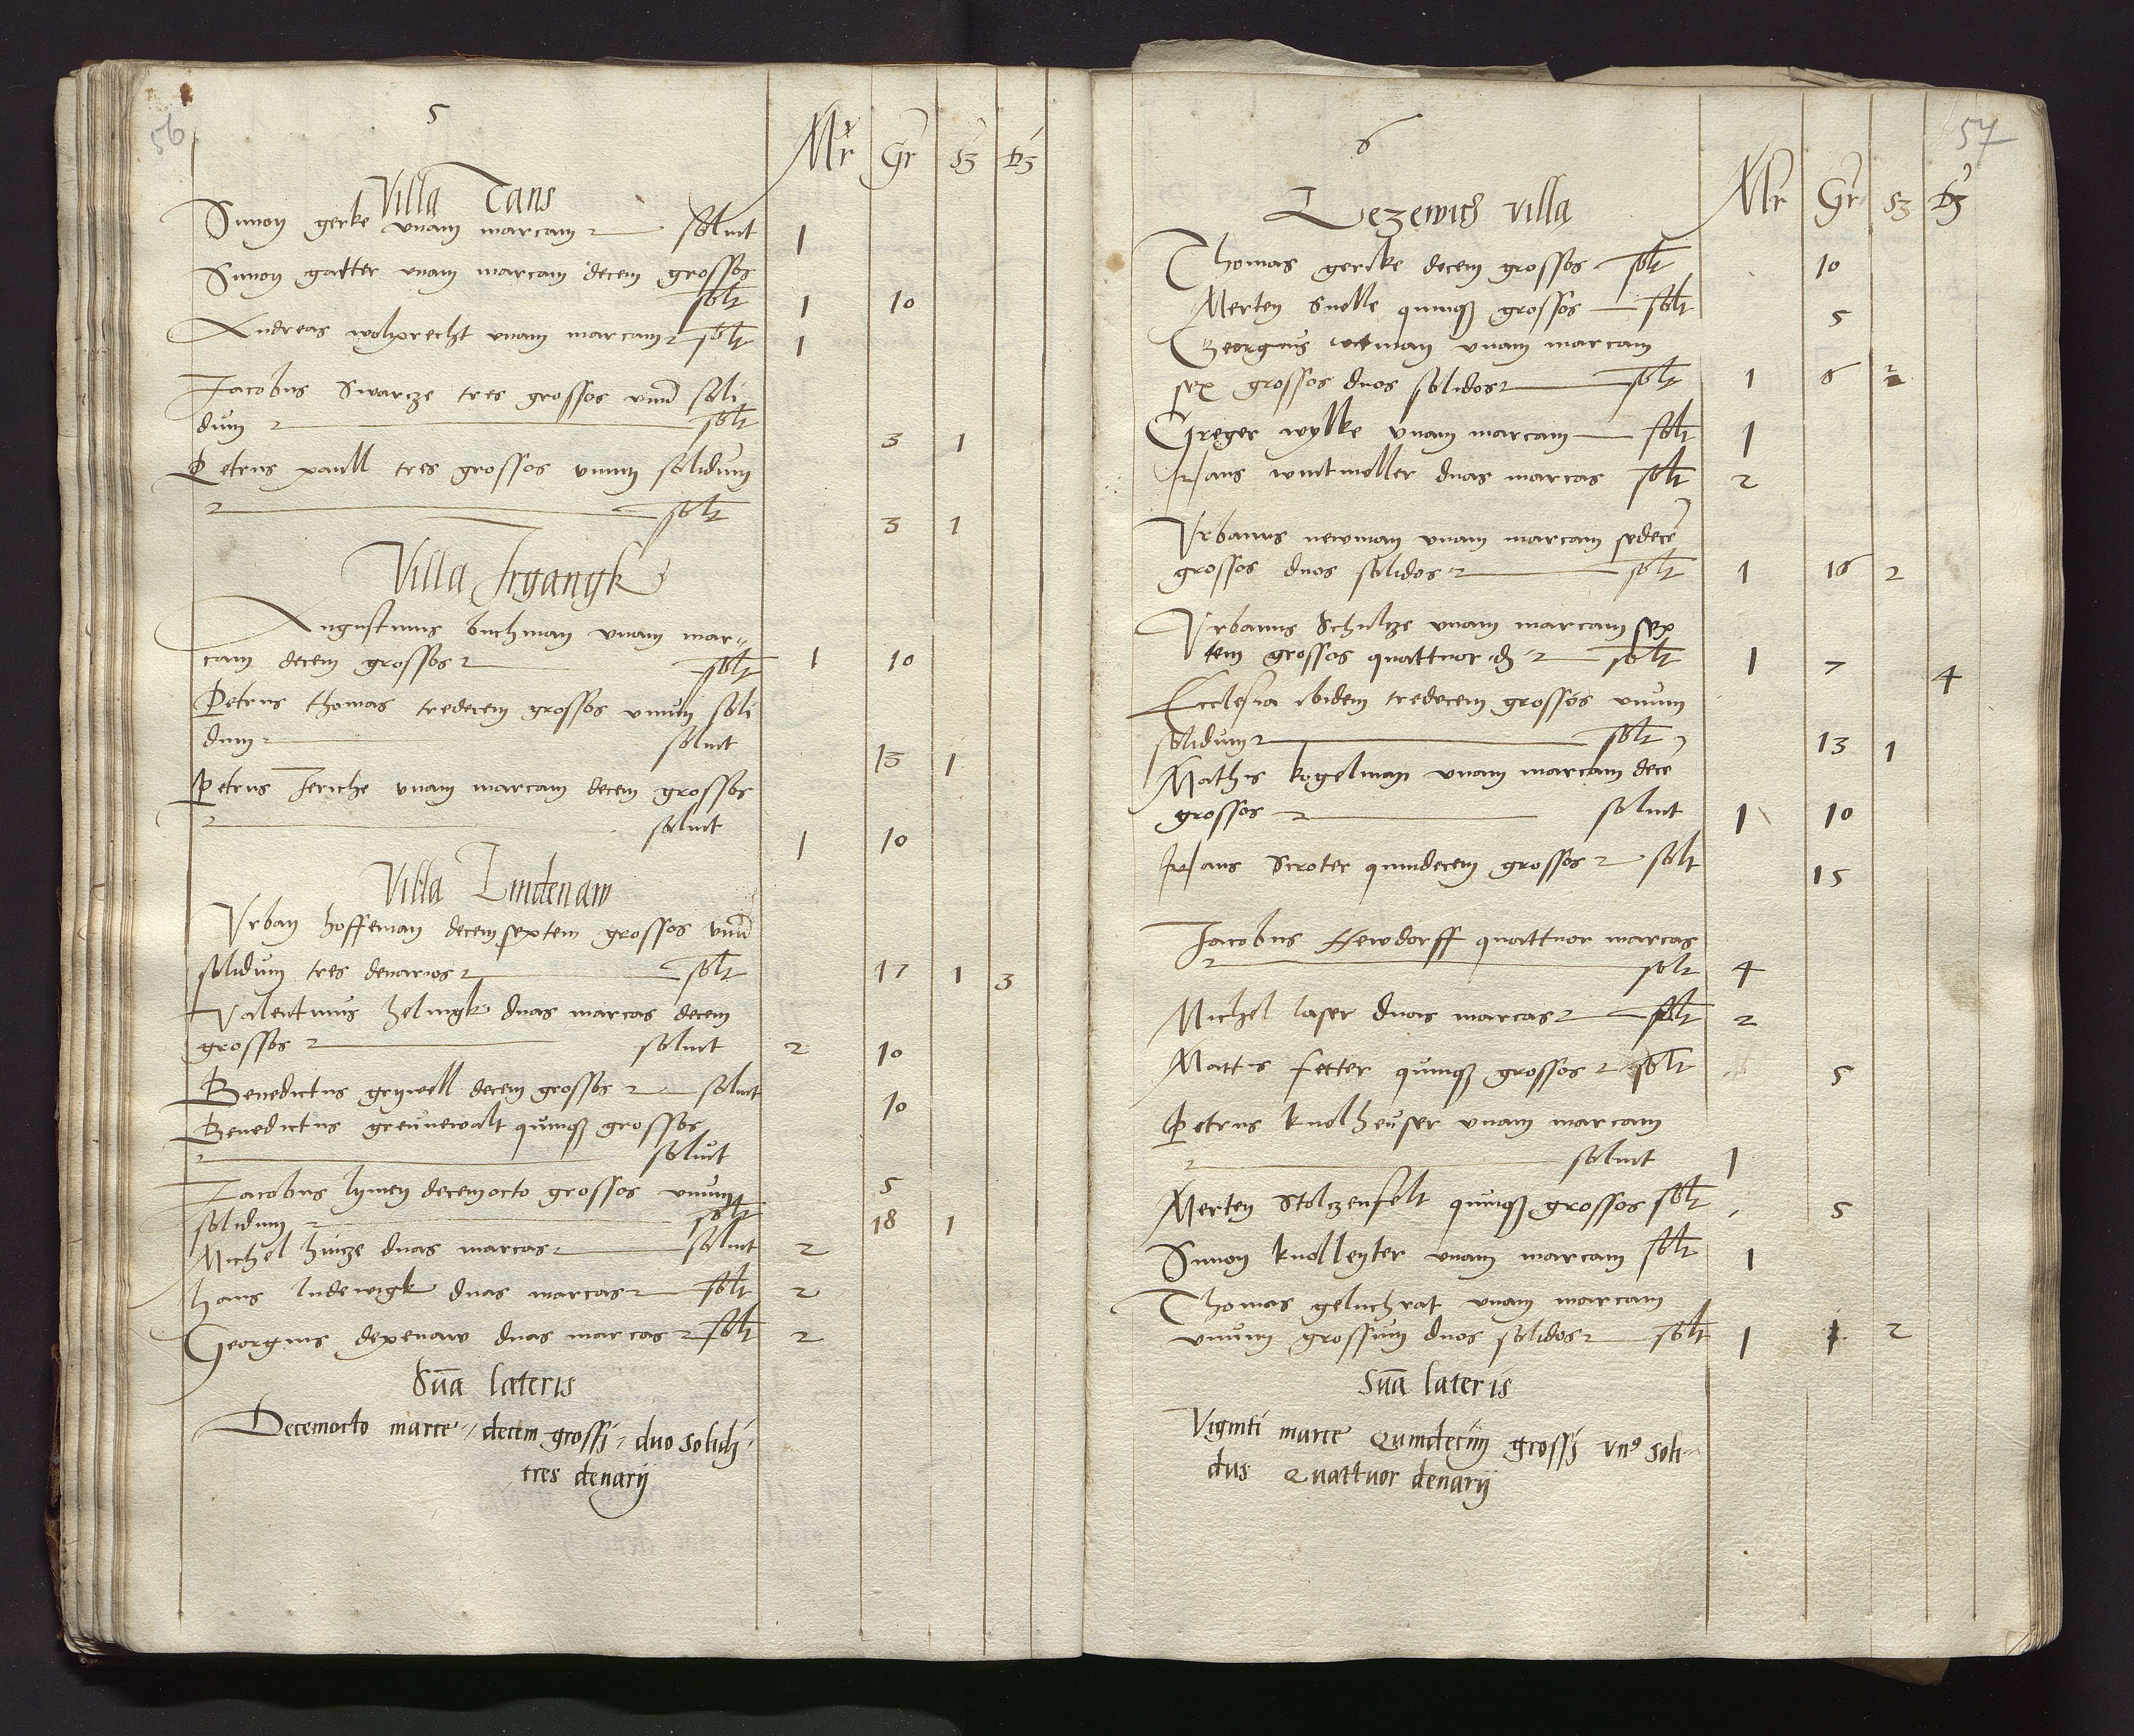 56
5
Mr Gr ß ₰
Villa Tans
Simon gerke vnam marcam soluit 1
Simon gatter vnam marcam decem grossos
solt 1 10
Andreas wolprecht vnam marcam solt 1
Jacobus Swarcze tres grossos vnū soli
dum solt 3 1
Petrus paull tres grossos vnum solidum
solt 3 1
Villa Irgangk
Augustinus buchman vnam mar⸗
cam decem grossos solt 1 10
Petrus thomas tredecem grossos vnum soli
dum soluit 13 1
Petrus Jeriche vnam marcam decem grossos
soluit 1 10
Villa Lindenaw
Vrban hoffeman decemseptem grossos vnū
solidum tres denarios solt 17 1 3
Valentinus helingk duas marcas decem
grossos soluit 2 10
Benedictus grywell decem grossos soluit 10
Benedictus greunewalt quinqȝ grossos
soluit 5
Jacobus lymen decemocto grossos vnum
solidum solt 18 1
Michel hincze duas marcas soluit 2
Hans ludewigk duas marcas solt 2
Georgius depenaw duas marcas solt 2
Sūa lateris
Decemocto marce decem grossj duo solidj
tres denarij
57
6
Mr Gr ß ₰
Lezewicz villa
Thomas gericke decem grossos solt 10
Merten Snelle quinqȝ grossos solt 5
Georgius witman vnam marcam
sex grossos duos solidos solt 1 6 2
Greger wylke vnam marcam solt 1
Hans wintmoller duas marcas solt 2
Vrbanus newman vnam marcam sedecē
grossos duos solidos solt 1 16 2
Vrbanus Schultze vnam marcam sep
tem grossos quattuor ₰ solt 1 7 4
Ecclesia ibidem tredecem grossos vnum
solidum solt 13 1
Mathis kogelman vnam marcam decē
grossos soluit 1 10
Hans Scroter quindecem grossos solt 15
Jacobus Hewdorff quattuor marcas
solt 4
Michel laser duas marcas solt 2
Mattis fetter quinqȝ grossos solt 5
Petrus knolheuser vnam marcam
soluit 1
Merten Stolczenfelt quinqȝ grossos solt 5
Simon knolleyter vnam marcam solt 1
Thomas geluchrat vnam marcam
vnum grossum duos solidos solt 1 1 2
Sūa lateris
Viginti marce Quindecim grossj vn⁹ soli⸗
dus Quattuor denarij